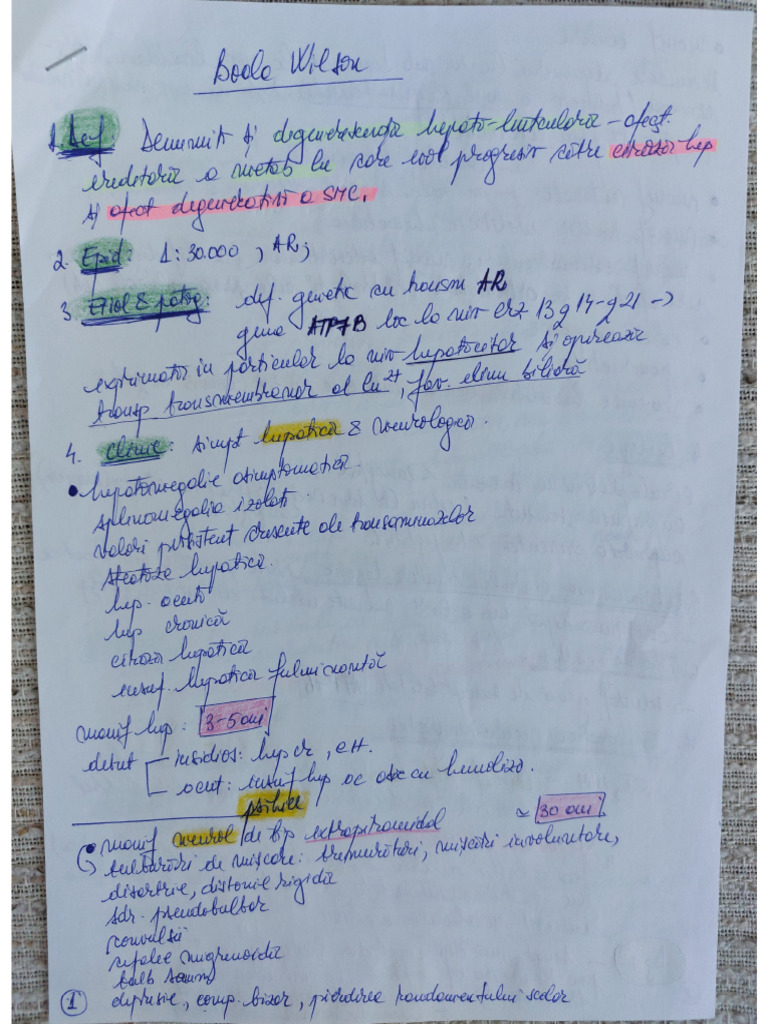 Boala Wilson
1. Def Denumită și degenerescența hepato-lenticulară - afecț.
ereditară a metab Cu care evol progresiv către ciroză hep
și afect degenerativă a SNC.
2. Epid: 1:30.000, AR;
3. Etiol & patog: def. genetic cu transm AR
gena ATP7B loc la niv crz 13q14-q21 →
exprimată în particular la niv hepatocitar și operează
transp transmembranar al Cu2+, fav. elim biliară
4. Clinic: simpt hepatică & neurologică.
• hepatomegalie asimptomatică
splenomegalia izolată
valori persistent crescute ale transaminazelor
steatoza hepatică.
hep. acută
hep cronică
ciroza hepatică
insuf. hepatica fulminantă
manif hep: 3-5 ani
debut insidios: hep cr, CH.
acut: insuf hep ac asc cu hemoliza.
psihice
• manif neurol de tip extrapiramidal ≈ 30 ani
tulburări de mișcare: tremurături, mișcări involuntare,
disartrie, distonie rigidă
sdr. pseudobulbar
convulsii
cefalee migrenoidă
tulb somn
1 depresie, comp. bizar, pierderea randamentului școlar